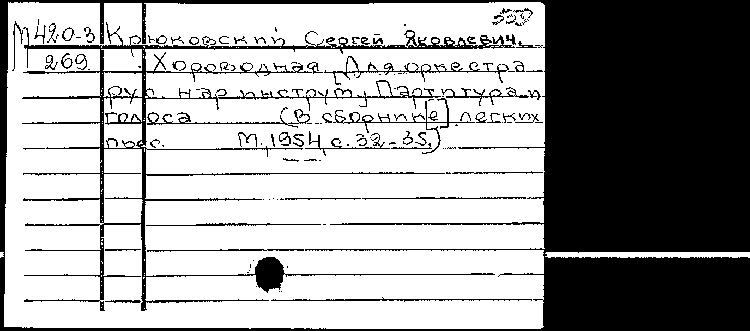 559
М 420-3 Крюковский, Сергей Яковлевич.
269 Хороводная. [Для оркестра
рус. нар инструм] Партитура и
голоса (В сборнике] легких
пьес. М., 1954, с. 32-35.)